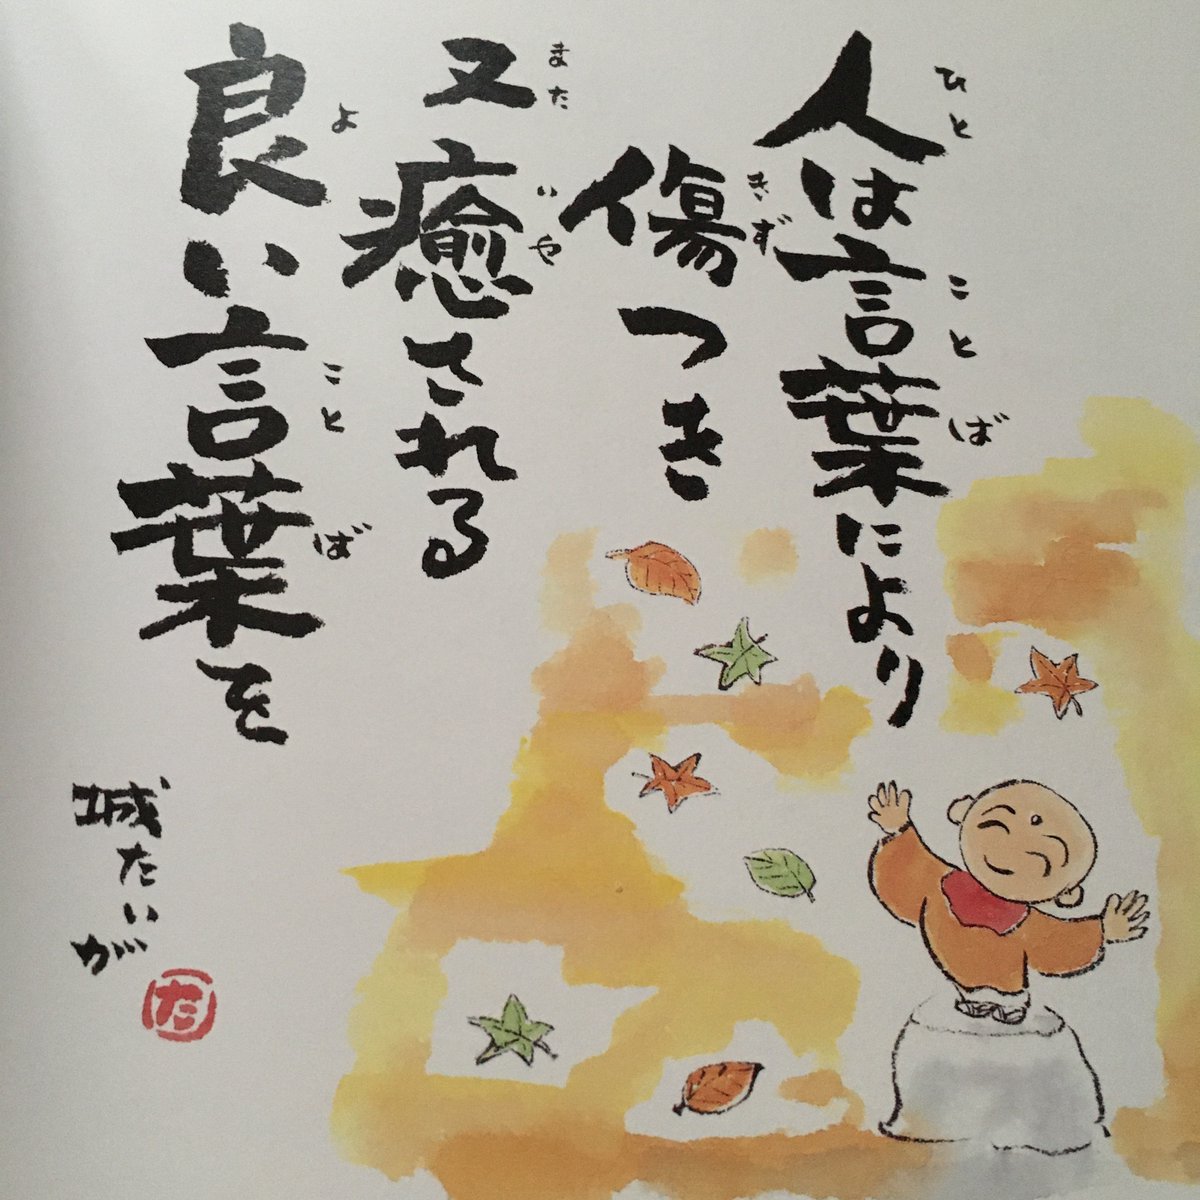 人は言葉により
傷つき
又癒される
良い言葉を
城たいが
た